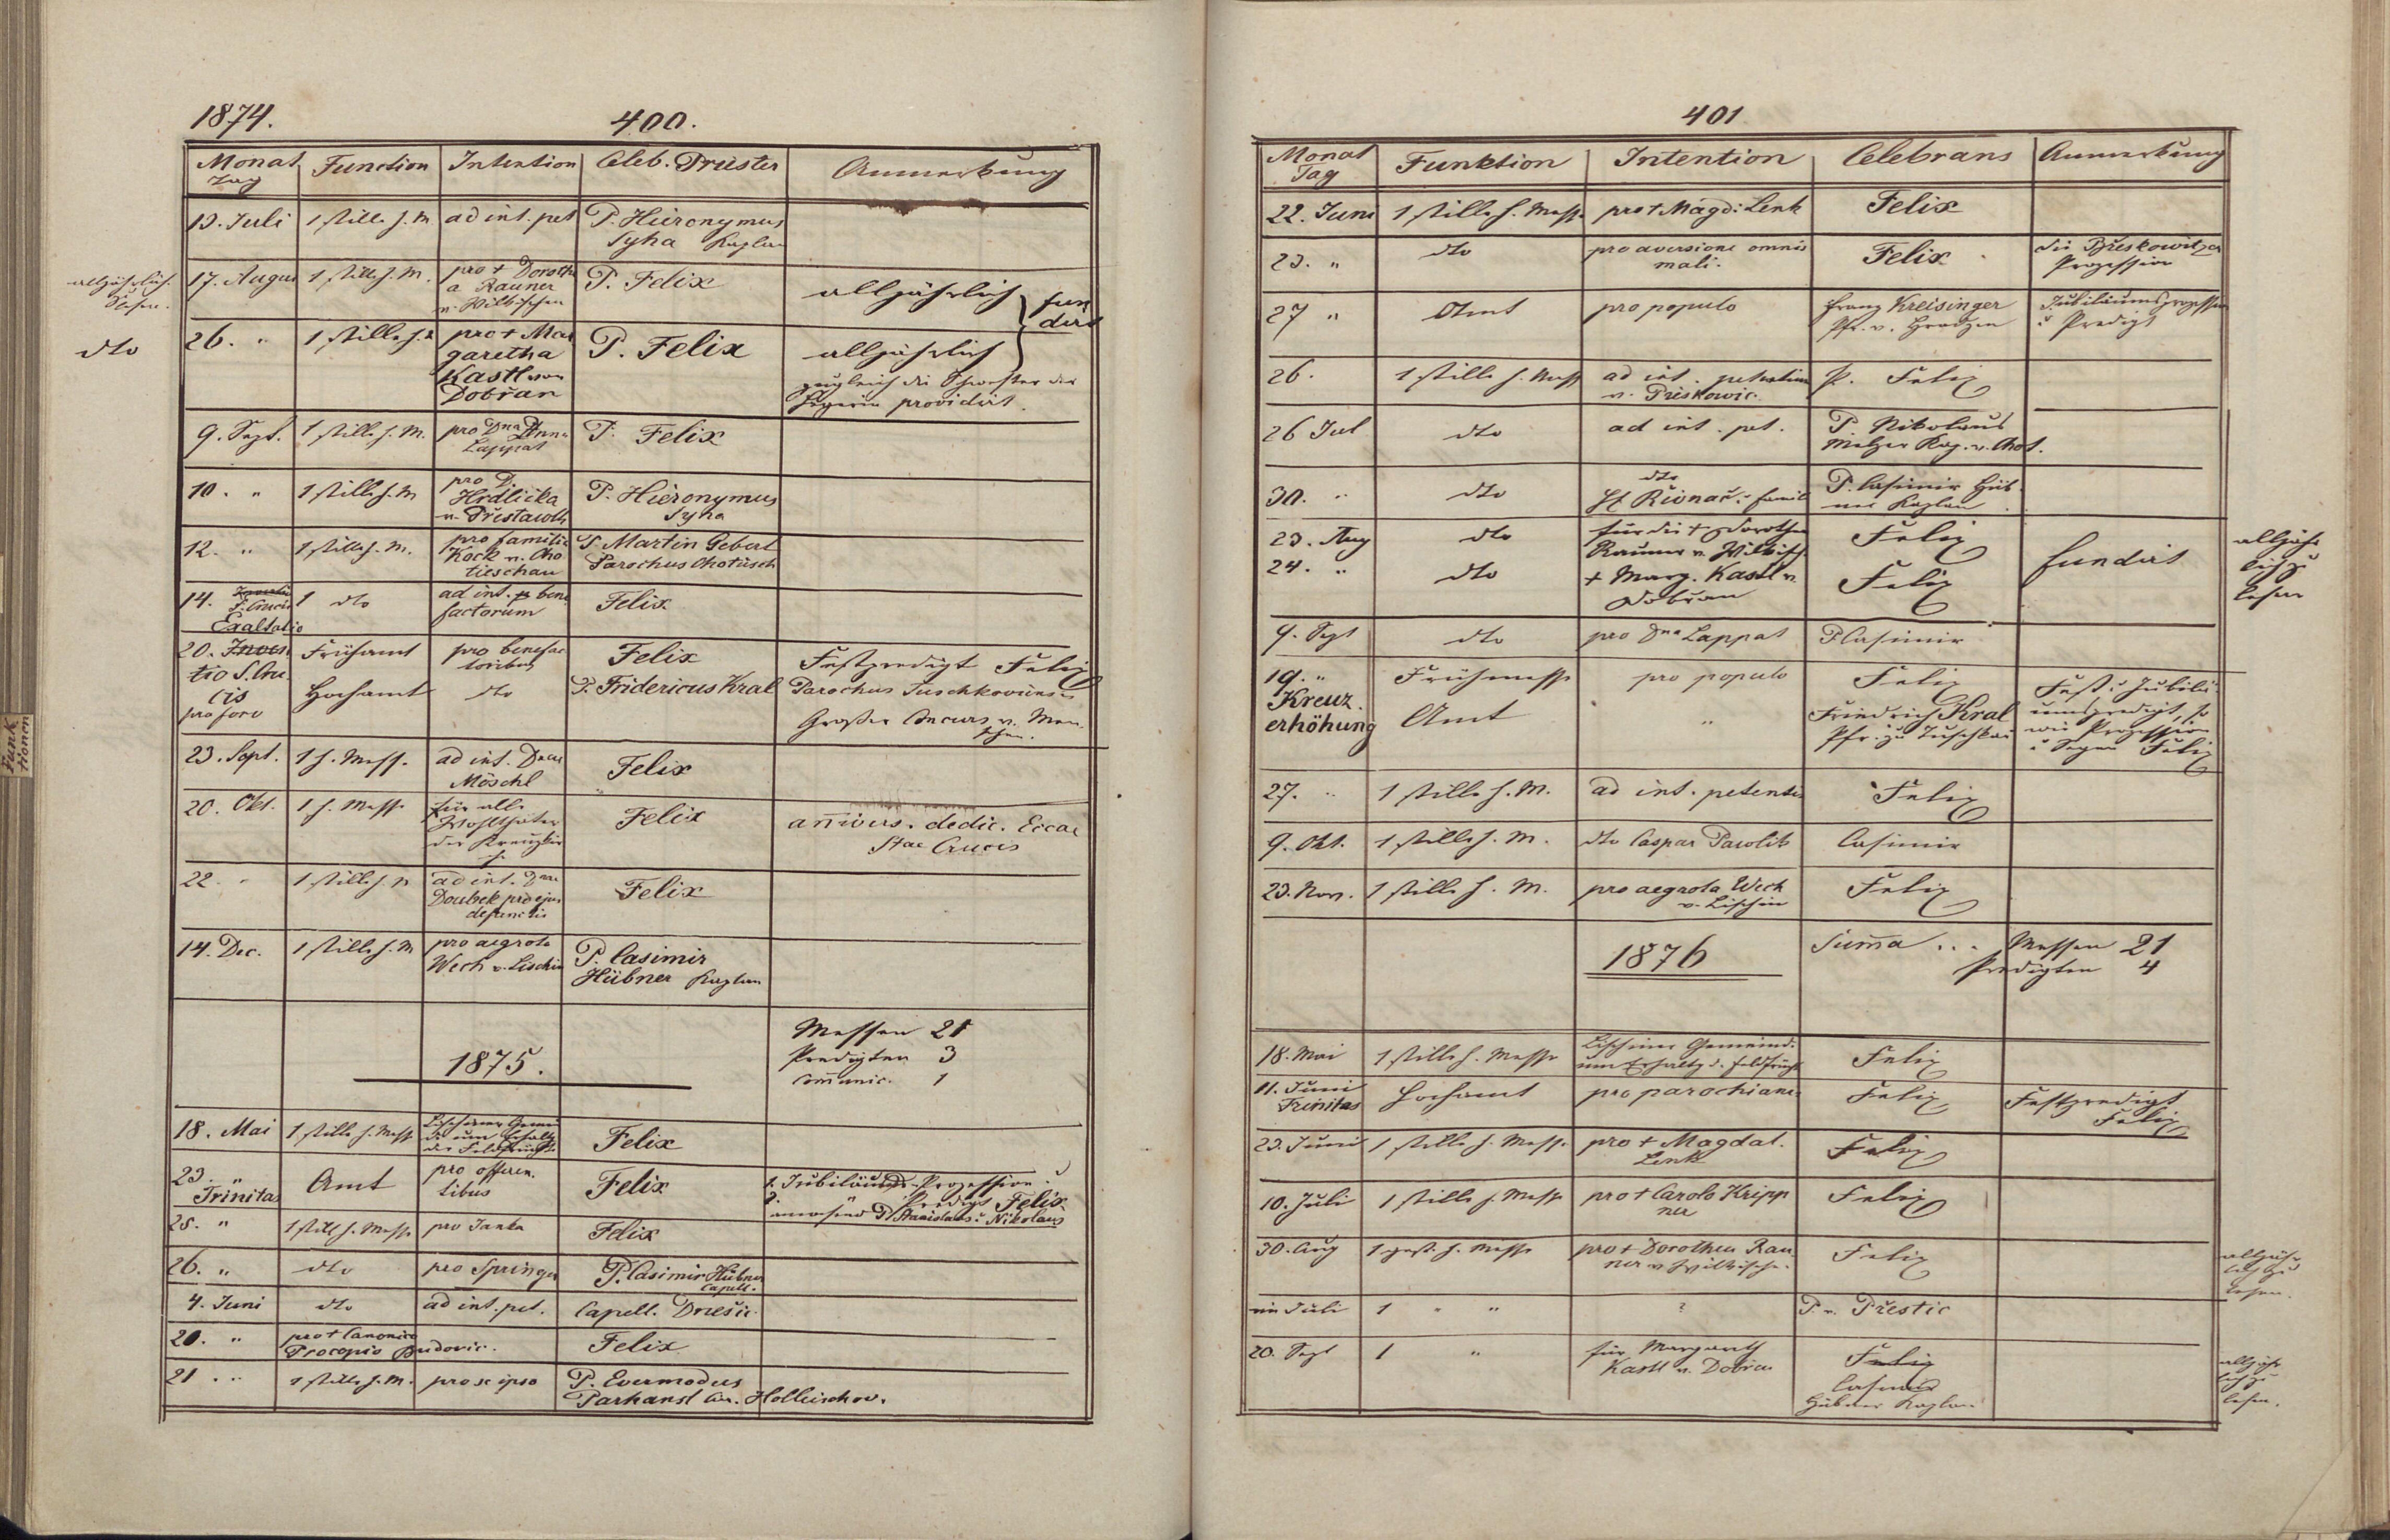 1874.
400.
Monat Tag | Function | Intention | Celeb. Priester | Anmerkung
13. Juli | 1 stille h. M | ad int. pet | P. Hieronymus Syha Kaplan
alljährlich lesen. | 17. August | 1 stille h. M. | pro + Dorothea Rauner v. Wilkischen | P. Felix | alljährlich } fundirt
dto | 26. " | 1 stille h. M | pro + Margaretha Kastl von Dobřan | P. Felix | alljährlich
zugleich die Schwester der providirt.
9. Sept. | 1 stille h. M. | pro Dna Anna Lappat | P. Felix
10. " | 1 stille h. M | pro D. Hrdlička v. Přestawlk | P. Hieronymus Syha
12. " | 1 stille h. M. | pro familia Kock v. Chotieschau | P. Martin Gebert Parochus Chotiesch
14. S. Crucis Exaltatio | 1 dto | ad int. benefactorum | Felix
20. Inventio S. Crucis pro foro | Frühamt | pro benefactoribus | Felix | Festpredigt Felix
Hochamt | dto | P. Fridericus Kral | Parochus Tuschkoviensis
Großer Concurs v. Menschen.
23. Sept. | 1 h. Messe | ad int. Dnae Möschl | Felix
20. Okt. | 1 h. Messe | für alle Wohlthäter der Kreuzkirche | Felix | anivers. dedic. Eccae Stae Crucis
22. " | 1 stille h. M | ad int. Dnae Doubek pro ejus defunctis | Felix
14. Dec. | 1 stille h. M | pro aegrota Wech v. Lischin | P. Casimir Hübner Kaplan
Messen 21
Predigten 3
Communic. 1
1875.
18. Mai | 1 stille h. Messe | Lischiner Gemeinde um Erhaltg der Feldfrüchte | Felix
23. " Trinitas | Amt | pro offerentibus | Felix | 1. Jubiläums-Prozession u.
2. Predigt Felix
anwesend P. Stanislaus u. Nikolaus
25. " | 1 still h. Messe | pro Janka | Felix
26. " | dto | pro Springer | P. Casimir Hübner Capell.
4. Juni | dto | ad int. pet. | Capell. Dnešic.
20. " | pro + Canonico Procopio Budovic. | Felix
21. " | 1 stille h. M. | pro se ipso | P. Evermodus Parhansl Cur. Holleischov.
401
Monat Tag | Funktion | Intention | Celebrans | Anmerkung
22. Juni | 1 stille h. Messe | pro + Magd: Lenk | Felix
23. " | dto | pro aversione omnis mali. | Felix | die Přeskowitzer Prozession
27 " | Amt | pro populo | Franz Kreisinger Pfr. v. Hradzen | Jubiläumsprozession u. Predigt
26. | 1 stille h. Mess | ad int. petentium v. Přeskowic. | P. Felix
26 Jul | dto | ad int. pet. | P. Nikolaus Melzer Kap. v. Chot.
30. " | dto | dto Řivnač. Famil | P. Casimir Hübner Kaplan
23. Aug | dto | für die + Dorothea Rauner v. Wilkisch | Felix | fundirt | alljährlich zu lesen
24. " | dto | + Marg. Kastl v. Dobřan | Felix
9. Sept | dto | pro Dna Lappat | P Casimir
19. " Kreuzerhöhung | Frühmesse | pro populo | Felix | Fest u. Jubiläumspredigt, so wie Prozession u. Segen Felix
Amt | " | Friedrich Kral Pfr. zu Tuschkau
27. " | 1 stille h. M. | ad int. petentis | Felix
9. Okt. | 1 stille h. M. | dto Caspar Pawlik | Casimir
23. Nov. | 1 stille h. M. | pro aegrota Wech v. Lischin | Felix
Suma ... Messen 21
Predigten 4
1876
18. Mai | 1 stille h. Messe | Lischiner Gemeind. um Erhaltg d. Feldfrüchte | Felix
11. Juni Trinitas | Hochamt | pro parochianis | Felix | Festpredigt Felix
23. Juni | 1 stille h. Messe | pro + Magdal. Lenk | Felix
10. Juli | 1 stille h. Messe | pro + Carolo Krippner | Felix
30. Aug | 1 gest. h. Messe | pro + Dorothea Rauner v. Wilkischen. | Felix | alljährlich zu lesen.
im Juli | 1 " " | ? | P. v. Přestic
20. Sept | 1 " | für Margareth Kastl v. Dobřan | Felix Casimir Hübner Kaplan | alljährlich zu lesen.
Funktionen